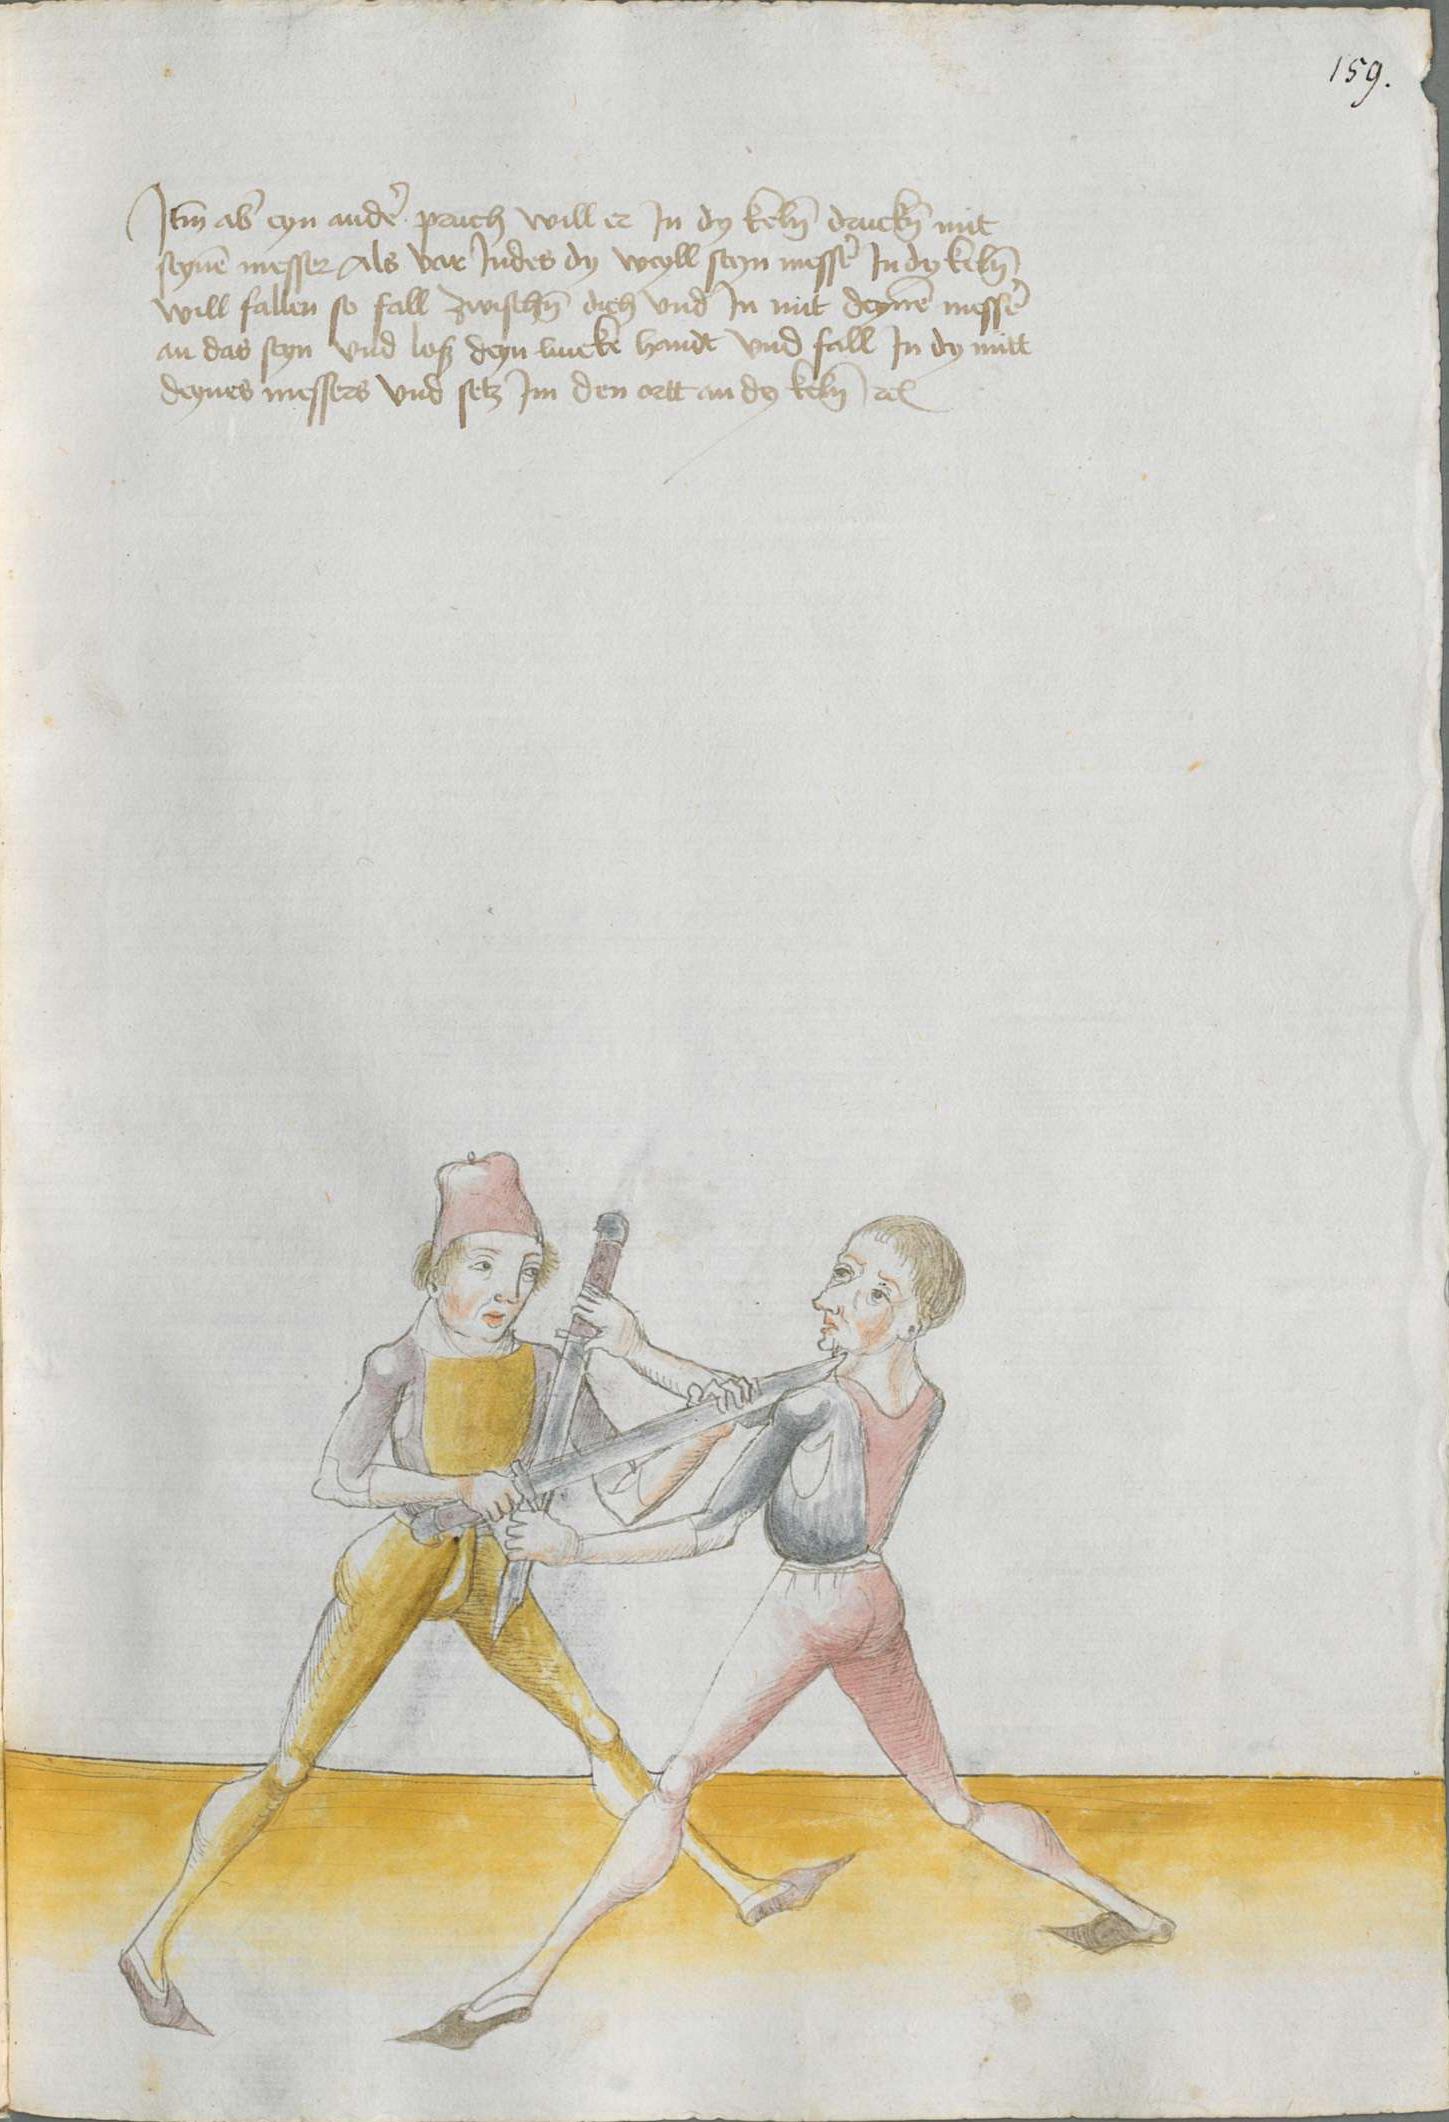 159.
Itm̄ ab eyn ander pruch will er In dy keln̄ druckn̄ mit
seynē messer Als var Indes dy weyll seyn messer In dy keln̄
will fallen so fall zwischn̄ dich vnd In mit deynē messer
an das seyn vnd loß deyn lincke handt vnd fall In dy mitt
deynes messers vnd setz Im den ortt an dy keln̄